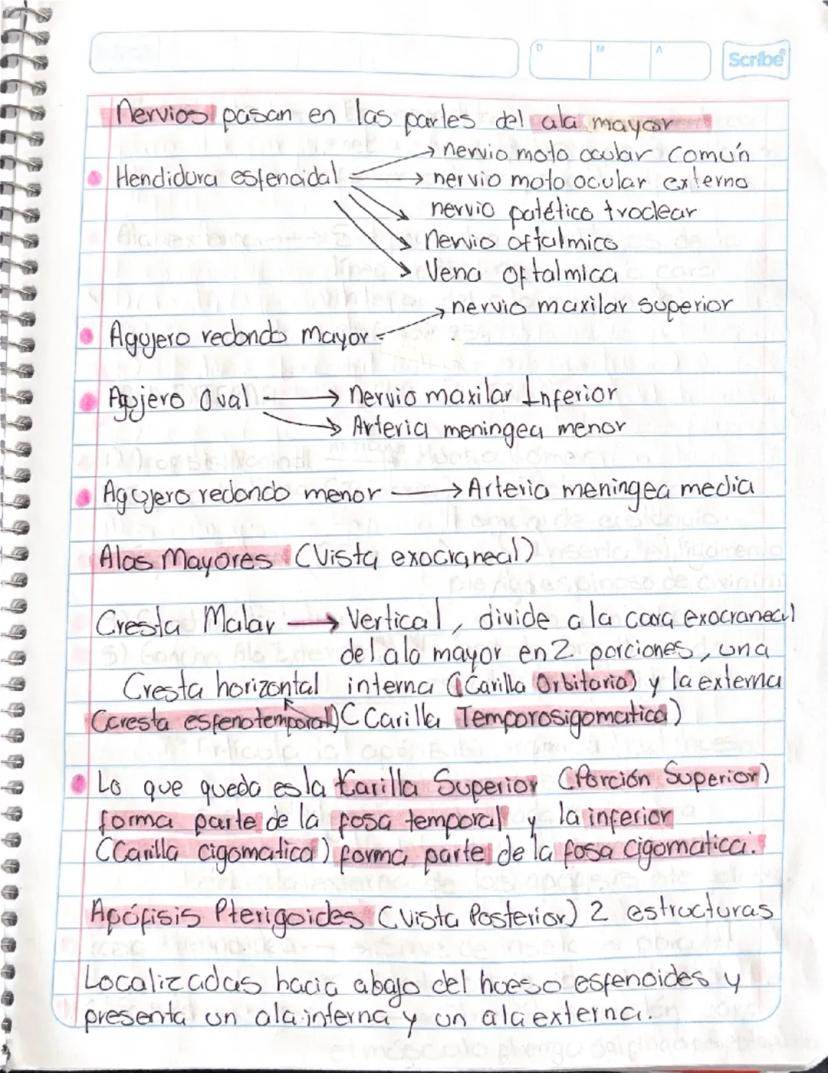 D M A Scribe
Nervios pasan en las partes del ala mayor
→ nervio moto ocular común
Hendidura esfenoidal → nervio moto ocular externo
nervio patético troclear
Nervio oftalmico
Vena oftalmica
→ nervio maxilar superior
Agujero redondo mayor
Agujero Oval → Nervio maxilar Inferior
→ Arteria meningea menor
Agujero redondo menor → Arteria meningea media
Alas Mayores (Vista exocraneal)
Cresta Malar → Vertical, divide a la cara exocraneal
del ala mayor en 2 porciones, una
Cresta horizontal interna (Carilla Orbitaria) y la externa
(cresta esfenotemporal) (Carilla Temporosigomatica)
Lo que queda es la Carilla Superior (Porción Superior)
forma parte de la fosa temporal y la inferior
(Carilla cigomatica) forma parte de la fosa cigomatica.
Apófisis Pterigoides (Vista Posterior) 2 estructuras
Localizadas hacia abajo del hueso esfenoides y
presenta un ala interna y un ala externa.